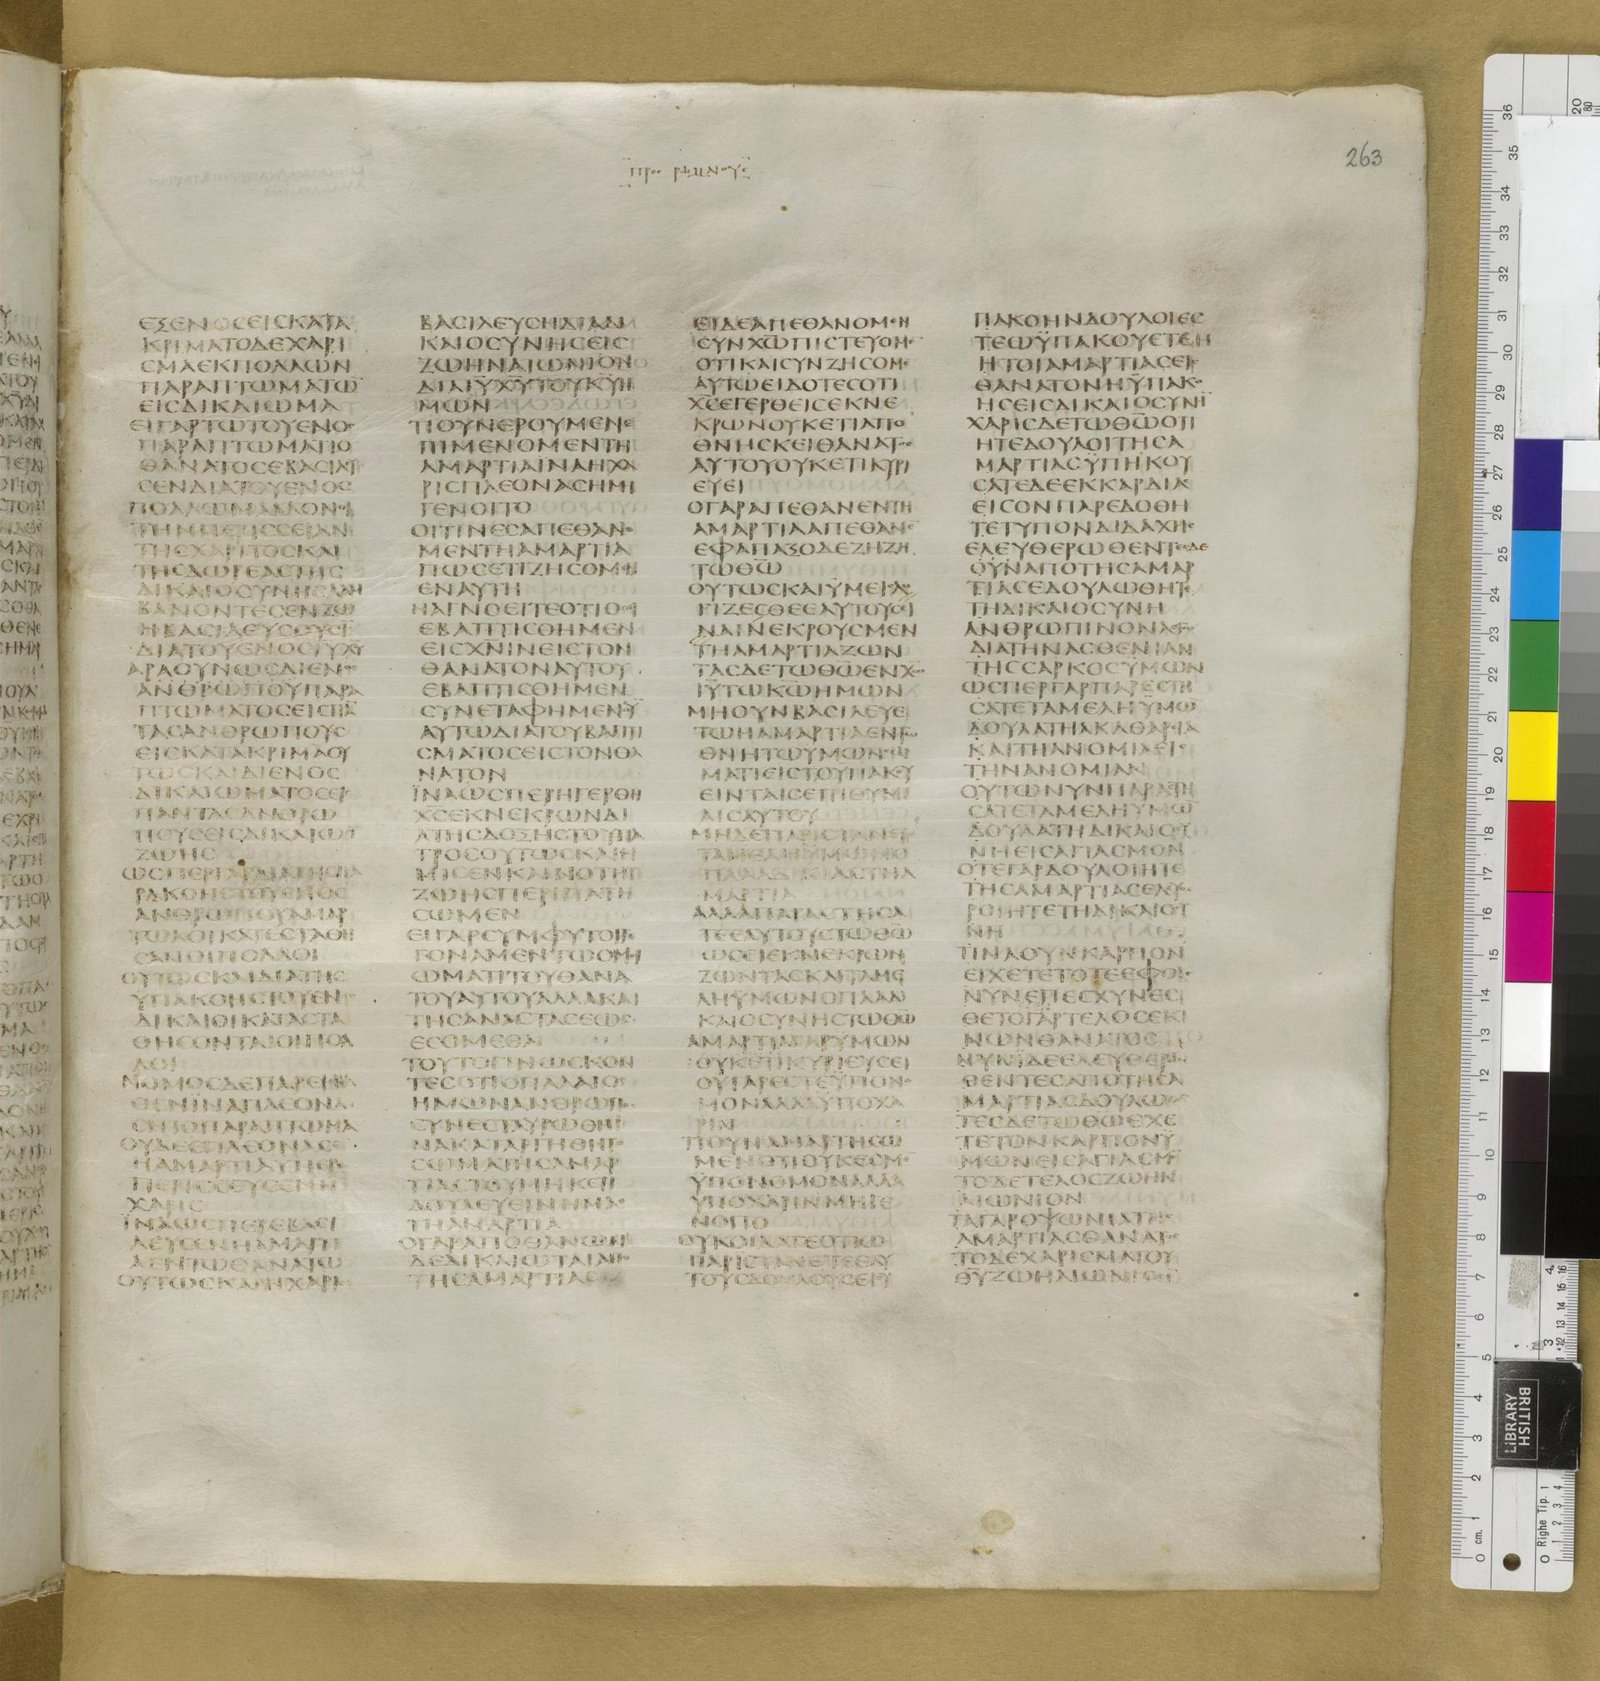 263
ΕΞΕΝΟϹΕΙϹΚΑΤΑ
ΚΡΙΜΑΤΟΔΕΧΑΡΙ
ϹΜΑΕΚΠΟΛΛΩΝ
ΠΑΡΑΠΤΩΜΑΤΩ̅
ΕΙϹΔΙΚΑΙΩΜΑ
ΕΙΓΑΡΤΩΤΟΥΕΝΟϹ
ΠΑΡΑΠΤΩΜΑΤΙΟ
ΘΑΝΑΤΟϹΕΒΑϹΙΛΕΥ
ϹΕΝΔΙΑΤΟΥΕΝΟϹ
ΠΟΛΛΩΜΑΛΛΟΝΟΙ
ΤΗΝΠΕΡΙϹϹΕΙΑΝ
ΤΗϹΧΑΡΙΤΟϹΚΑΙ
ΤΗϹΔΩΡΕΑϹΤΗϹ
ΔΙΚΑΙΟϹΥΝΗϹΛΑΜ
ΒΑΝΟΝΤΕϹΕΝΖΩ
ΗΒΑϹΙΛΕΥϹΟΥϹΙ
ΔΙΑΤΟΥΕΝΟϹΙ̅Υ̅Χ̅Υ̅
ΑΡΑΟΥΝΩϹΔΙΕΝΟϹ
ΑΝΘΡΩΠΟΥΠΑΡΑ
ΠΤΩΜΑΤΟϹΕΙϹΠΑ̅
ΤΑϹΑΝΘΡΩΠΟΥϹ
ΕΙϹΚΑΤΑΚΡΙΜΑΟΥ
ΤΩϹΚΑΙΔΙΕΝΟϹ
ΔΙΚΑΙΩΜΑΤΟϹΕΙϹ
ΠΑΝΤΑϹΑΝΘΡΩ
ΠΟΥϹΕΙϹΔΙΚΑΙΩϹΙ̅
ΖΩΗϹ
ΩϹΠΕΡΓΑΡΔΙΑΤΗϹΠΑ
ΡΑΚΟΗϹΤΟΥΕΝΟϹ
ΑΝΘΡΩΠΟΥΑΜΑΡ
ΤΩΛΟΙΚΑΤΕϹΤΑΘΗ
ϹΑΝΟΙΠΟΛΛΟΙ
ΟΥΤΩϹΚΑΙΔΙΑΤΗϹ
ΥΠΑΚΟΗϹΤΟΥΕΝΟϹ
ΔΙΚΑΙΟΙΚΑΤΑϹΤΑ
ΘΗϹΟΝΤΑΙΟΙΠΟΛ
ΛΟΙ
ΝΟΜΟϹΔΕΠΑΡΕΙϹΗΛ
ΘΕΝΙΝΑΠΛΕΟΝΑ
ϹΗΤΟΠΑΡΑΠΤΩΜΑ
ΟΥΔΕΕΠΛΕΟΝΑϹΕ
ΗΑΜΑΡΤΙΑΥΠΕΡΕ
ΠΕΡΙϹϹΕΥϹΕΝΗ
ΧΑΡΙϹ
ΙΝΑΩϹΠΕΡΕΒΑϹΙ
ΛΕΥϹΕΝΗΑΜΑΡΤΙ
ΑΕΝΤΩΘΑΝΑΤΩ
ΟΥΤΩϹΚΑΙΗΧΑΡΙϹ
ΒΑϹΙΛΕΥϹΗΔΙΑΔΙ
ΚΑΙΟϹΥΝΗϹΕΙϹ
ΖΩΗΝΑΙΩΝΙΟΝ
ΔΙΑΙ̅Υ̅Χ̅Υ̅ΤΟΥΚ̅Υ̅Η
ΜΩΝ
ΤΙΟΥΝΕΡΟΥΜΕΝ
ΕΠΙΜΕΝΟΜΕΝΤΗ
ΑΜΑΡΤΙΑΙΝΑΗΧΑ
ΡΙϹΠΛΕΟΝΑϹΗΜΗ
ΓΕΝΟΙΤΟ
ΟΙΤΙΝΕϹΑΠΕΘΑΝΟ
ΜΕΝΤΗΑΜΑΡΤΙΑ
ΠΩϹΕΤΙΖΗϹΟΜΕΝ
ΕΝΑΥΤΗ
ΗΑΓΝΟΕΙΤΕΟΤΙΟϹΟΙ
ΕΒΑΠΤΙϹΘΗΜΕΝ
ΕΙϹΧ̅Ν̅Ι̅Ν̅ΕΙϹΤΟΝ
ΘΑΝΑΤΟΝΑΥΤΟΥ
ΕΒΑΠΤΙϹΘΗΜΕΝ
ϹΥΝΕΤΑΦΗΜΕΝΟΥ̅
ΑΥΤΩΔΙΑΤΟΥΒΑΠΤΙ
ϹΜΑΤΟϹΕΙϹΤΟΝΘΑ
ΝΑΤΟΝ
ΙΝΑΩϹΠΕΡΗΓΕΡΘΗ
Χ̅Ϲ̅ΕΚΝΕΚΡΩΝΔΙ
ΑΤΗϹΔΟΞΗϹΤΟΥΠΑ
ΤΡΟϹΟΥΤΩϹΚΑΙΗ
ΜΙϹΕΝΚΑΙΝΟΤΗΤΙ
ΖΩΗϹΠΕΡΙΠΑΤΗ
ϹΩΜΕΝ
ΕΙΓΑΡϹΥΜΦΥΤΟΙΓΕ
ΓΟΝΑΜΕΝΤΩΟΜΟΙ
ΩΜΑΤΙΤΟΥΘΑΝΑ
ΤΟΥΑΥΤΟΥΑΛΛΑΚΑΙ
ΤΗϹΑΝΑϹΤΑϹΕΩϹ
ΕϹΟΜΕΘΑ
ΤΟΥΤΟΓΙΝΩϹΚΟΝ
ΤΕϹΟΤΙΟΠΑΛΑΙΟϹ
ΗΜΩΝΑΝΘΡΩΠΟϹ
ϹΥΝΕϹΤΑΥΡΩΘΗΙ
ΝΑΚΑΤΑΡΓΗΘΗΤΟ
ϹΩΜΑΤΗϹΑΜΑΡ
ΤΙΑϹΤΟΥΜΗΚΕΤΙ
ΔΟΥΛΕΥΕΙΝΗΜΑϹ
ΤΗΑΜΑΡΤΙΑ
ΟΓΑΡΑΠΟΘΑΝΩΝ
ΔΕΔΙΚΑΙΩΤΑΙΑΠΟ
ΤΗϹΑΜΑΡΤΙΑϹ
ΕΙΔΕΑΠΕΘΑΝΟΜΕΝ
ϹΥΝΧ̅Ω̅ΠΙϹΤΕΥΟΜΕ
ΟΤΙΚΑΙϹΥΝΖΗϹΟΜΕ
ΑΥΤΩΕΙΔΟΤΕϹΟΤΙ
Χ̅Ϲ̅ΕΓΕΡΘΕΙϹΕΚΝΕ
ΚΡΩΝΟΥΚΕΤΙΑΠΟ
ΘΝΗϹΚΕΙΘΑΝΑΤΟϹ
ΑΥΤΟΥΟΥΚΕΤΙΚΥΡΙ
ΕΥΕΙ
ΟΓΑΡΑΠΕΘΑΝΕΝΤΗ
ΑΜΑΡΤΙΑΑΠΕΘΑΝΕ
ΕΦΑΠΑΞΟΔΕΖΗΖΗ
ΤΩΘ̅Ω̅
ΟΥΤΩϹΚΑΙΥΜΕΙϹΛΟ
ΓΙΖΕϹΘΕΕΑΥΤΟΥϹΕΙ
ΝΑΙΝΕΚΡΟΥϹΜΕΝ
ΤΗΑΜΑΡΤΙΑΖΩΝ
ΤΑϹΔΕΤΩΘ̅Ω̅ΕΝΧ̅Ω̅
Ι̅Υ̅ΤΩΚ̅Ω̅ΗΜΩΝ
ΜΗΟΥΝΒΑϹΙΛΕΥΕ
ΤΩΗΑΜΑΡΤΙΑΕΝΤΩ
ΘΝΗΤΩΥΜΩΝϹΩ
ΜΑΤΙΕΙϹΤΟΥΠΑΚΟΥ
ΕΙΝΤΑΙϹΕΠΙΘΥΜΙ
ΑΙϹΑΥΤΟΥ
ΜΗΔΕΠΑΡΙϹΤΑΝΕΤΕ
ΤΑΜΕΛΗΥΜΩΝΟ
ΠΛΑΑΔΙΚΙΑϹΤΗΑ
ΜΑΡΤΙΑ
ΑΛΛΑΠΑΡΑϹΤΗϹΑ
ΤΕΕΑΥΤΟΥϹΤΩΘ̅Ω̅
ΩϹΕΙΕΚΝΕΚΡΩΝ
ΖΩΝΤΑϹΚΑΙΤΑΜΕ
ΛΗΥΜΩΝΟΠΛΑΔΙ
ΚΑΙΟϹΥΝΗϹΤΩΘ̅Ω̅
ΑΜΑΡΤΙΑΓΑΡΥΜΩΝ
ΟΥΚΕΤΙΚΥΡΙΕΥϹΕΙ
ΟΥΓΑΡΕϹΤΕΥΠΟΝΟ
ΜΟΝΑΛΛΑΥΠΟΧΑ
ΡΙΝ
ΤΙΟΥΝΑΜΑΡΤΗϹΩ
ΜΕΝΟΤΙΟΥΚΕϹΜΕ
ΥΠΟΝΟΜΟΝΑΛΛΑ
ΥΠΟΧΑΡΙΝΜΗΓΕ
ΝΟΙΤΟ
ΟΥΚΟΙΔΑΤΕΟΤΙΩ
ΠΑΡΙϹΤΑΝΕΤΕΕΑΥ
ΤΟΥϹΔΟΥΛΟΥϹΕΙϹΥ
ΠΑΚΟΗΝΔΟΥΛΟΙΕϹ
ΤΕΩΥΠΑΚΟΥΕΤΕΗ
ΗΤΟΙΑΜΑΡΤΙΑϹΕΙϹ
ΘΑΝΑΤΟΝΗΥΠΑΚΟ
ΗϹΕΙϹΔΙΚΑΙΟϹΥΝΗ̅
ΧΑΡΙϹΔΕΤΩΘ̅Ω̅ΟΤΙ
ΗΤΕΔΟΥΛΟΙΤΗϹΑ
ΜΑΡΤΙΑϹΥΠΗΚΟΥ
ϹΑΤΕΔΕΕΚΚΑΡΔΙΑϹ
ΕΙϹΟΝΠΑΡΕΔΟΘΗ
ΤΕΤΥΠΟΝΔΙΔΑΧΗϹ
ΕΛΕΥΘΕΡΩΘΕΝΤΕϹΔΕ
ΟΥΝΑΠΟΤΗϹΑΜΑΡ
ΤΙΑϹΕΔΟΥΛΩΘΗΤΕ
ΤΗΔΙΚΑΙΟϹΥΝΗ
ΑΝΘΡΩΠΙΝΟΝΛΕΓΩ
ΔΙΑΤΗΝΑϹΘΕΝΙΑΝ
ΤΗϹϹΑΡΚΟϹΥΜΩΝ
ΩϹΠΕΡΓΑΡΠΑΡΕϹΤΗ
ϹΑΤΕΤΑΜΕΛΗΥΜΩ̅
ΔΟΥΛΑΤΗΑΚΑΘΑΡϹΙΑ
ΚΑΙΤΗΑΝΟΜΙΑΕΙϹ
ΤΗΝΑΝΟΜΙΑΝ
ΟΥΤΩΝΥΝΠΑΡΑϹΤΗ
ϹΑΤΕΤΑΜΕΛΗΥΜΩ̅
ΔΟΥΛΑΤΗΔΙΚΑΙΟϹΥ
ΝΗΕΙϹΑΓΙΑϹΜΟΝ
ΟΤΕΓΑΡΔΟΥΛΟΙΗΤΕ
ΤΗϹΑΜΑΡΤΙΑϹΕΛΕΥΘΕ
ΡΟΙΗΤΕΤΗΔΙΚΑΙΟϹΥ
ΝΗ
ΤΙΝΑΟΥΝΚΑΡΠΟΝ
ΕΙΧΕΤΕΤΟΤΕΕΦΟΙϹ
ΝΥΝΕΠΕϹΧΥΝΕϹ
ΘΕΤΟΓΑΡΤΕΛΟϹΕΚΙ
ΝΩΝΘΑΝΑΤΟϹ
ΝΥΝΙΔΕΕΛΕΥΘΕΡΩ
ΘΕΝΤΕϹΑΠΟΤΗϹΑ
ΜΑΡΤΙΑϹΔΟΥΛΩΘΕ
ΤΕϹΔΕΤΩΘ̅Ω̅ΕΧΕ
ΤΕΤΟΝΚΑΡΠΟΝΥ
ΜΩΝΕΙϹΑΓΙΑϹΜΟ̅
ΤΟΔΕΤΕΛΟϹΖΩΗΝ
ΑΙΩΝΙΟΝ
ΤΑΓΑΡΟΨΩΝΙΑΤΗϹ
ΑΜΑΡΤΙΑϹΘΑΝΑΤΟϹ
ΤΟΔΕΧΑΡΙϹΜΑΤΟΥ
Θ̅Υ̅ΖΩΗΑΙΩΝΙΟϹ